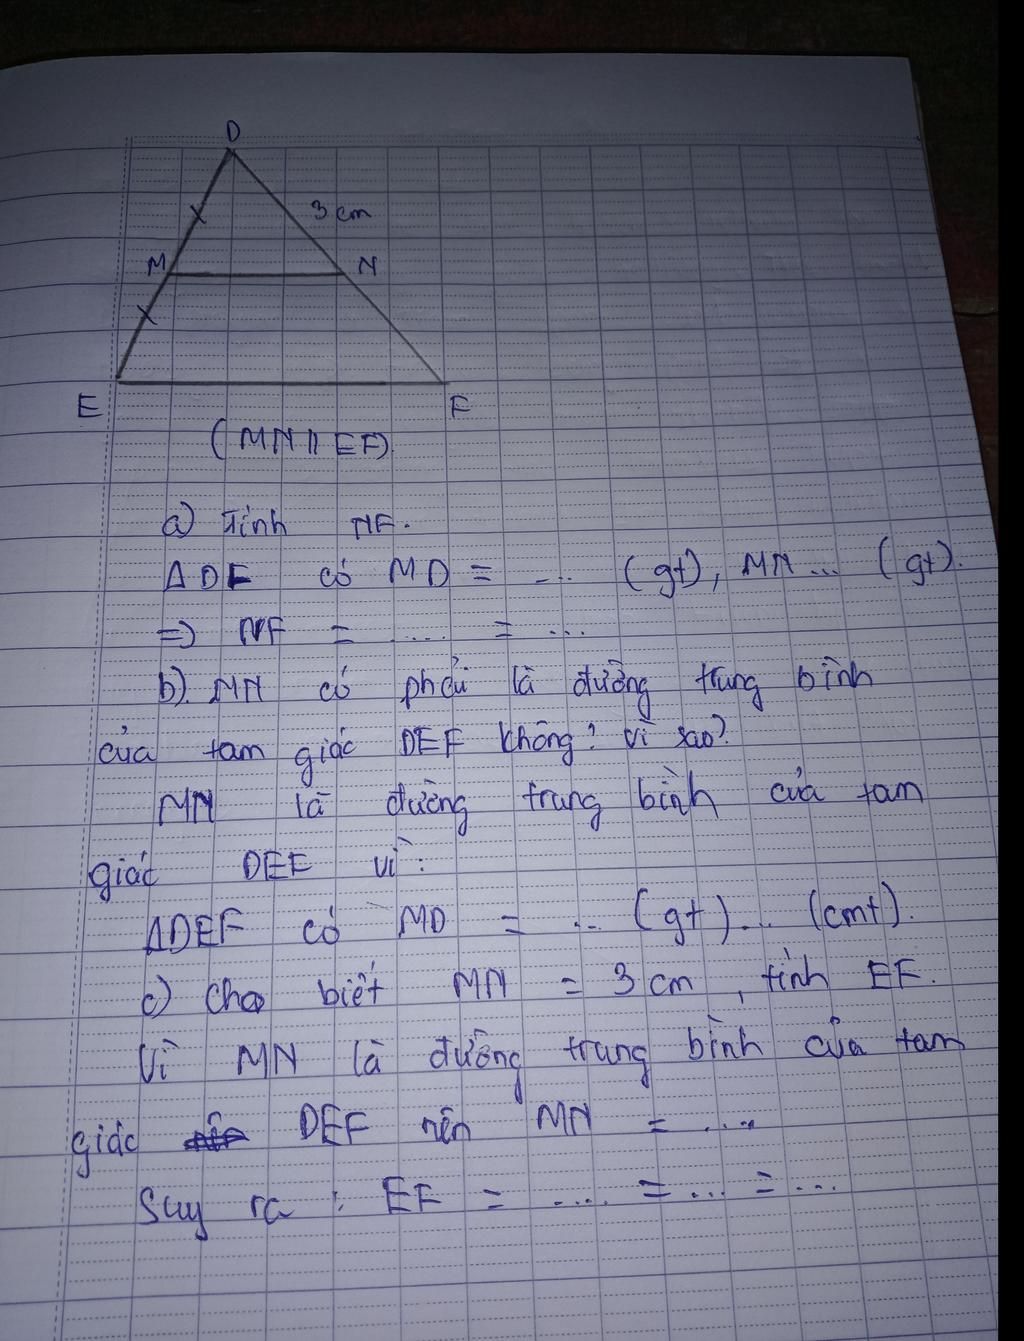 D
3cm
M
N
E
F
(MN || EF).
a) Tính NF.
ΔDEF có MD = ... (gt), MN ... (gt).
=> NF = .... = ...
b). MN có phải là đường trung bình
của tam giác DEF không? Vì sao?
MN là đường trung bình của tam
giác DEF vì:
ΔDEF có MD = ... (gt) ... (cmt).
c) Cho biết MN = 3cm, tính EF.
Vì MN là đường trung bình của tam
giác DEF nên MN = ....
Suy ra: EF = .... = ... = ...